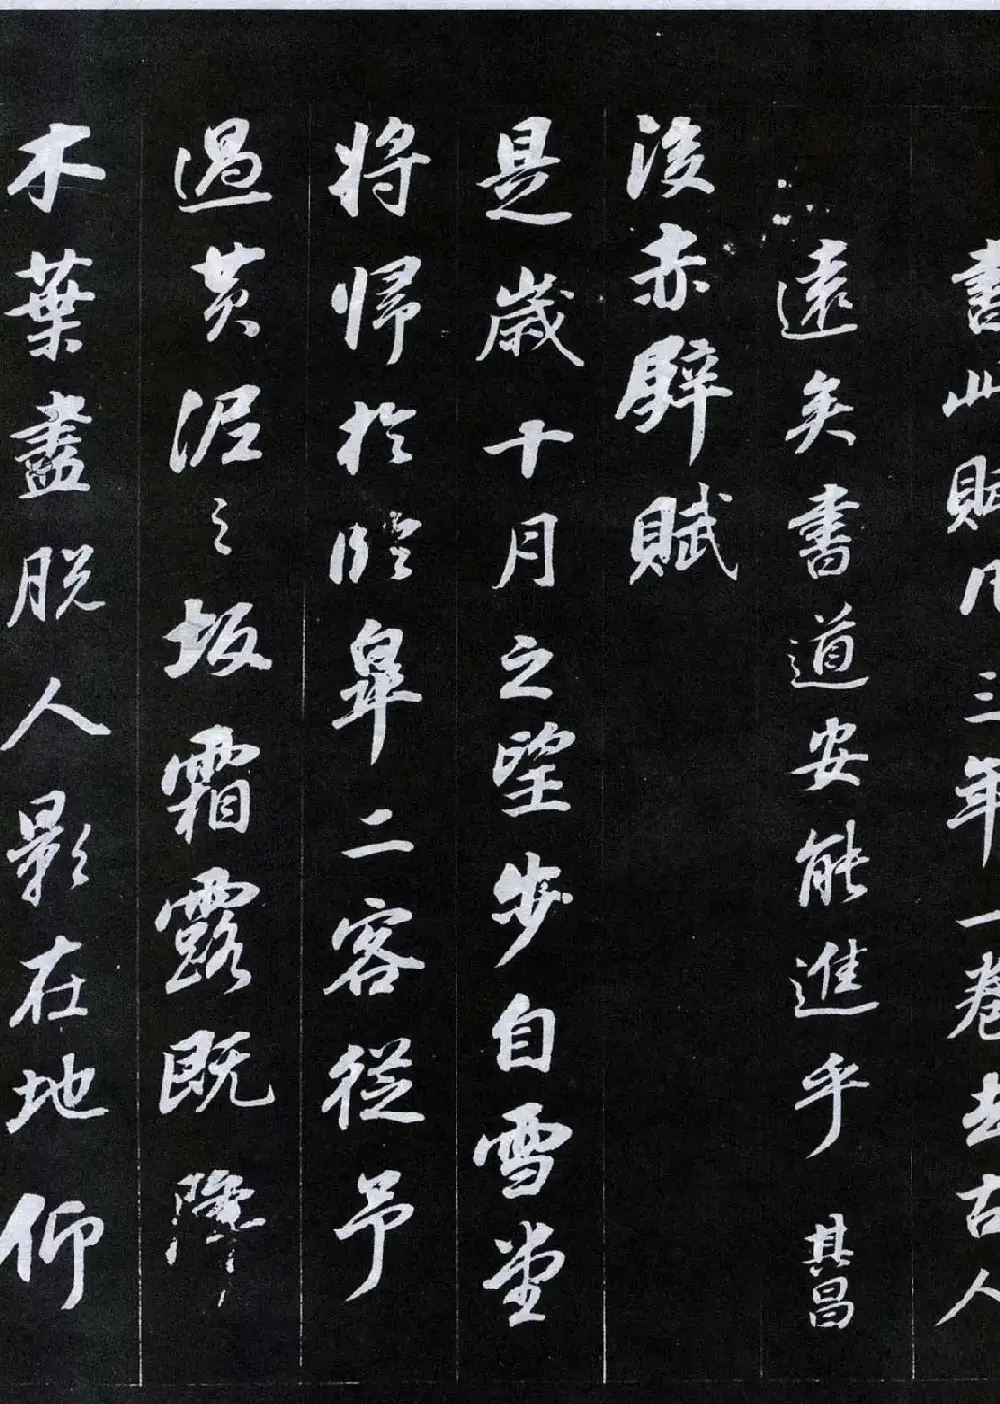 書此賦凡三年一卷去古人
遠矣書道安能進乎 其昌
後赤壁賦
是歲十月之望步自雪堂
將歸於臨皋二客從予
過黃泥之坂霜露既降
木葉盡脫人影在地仰